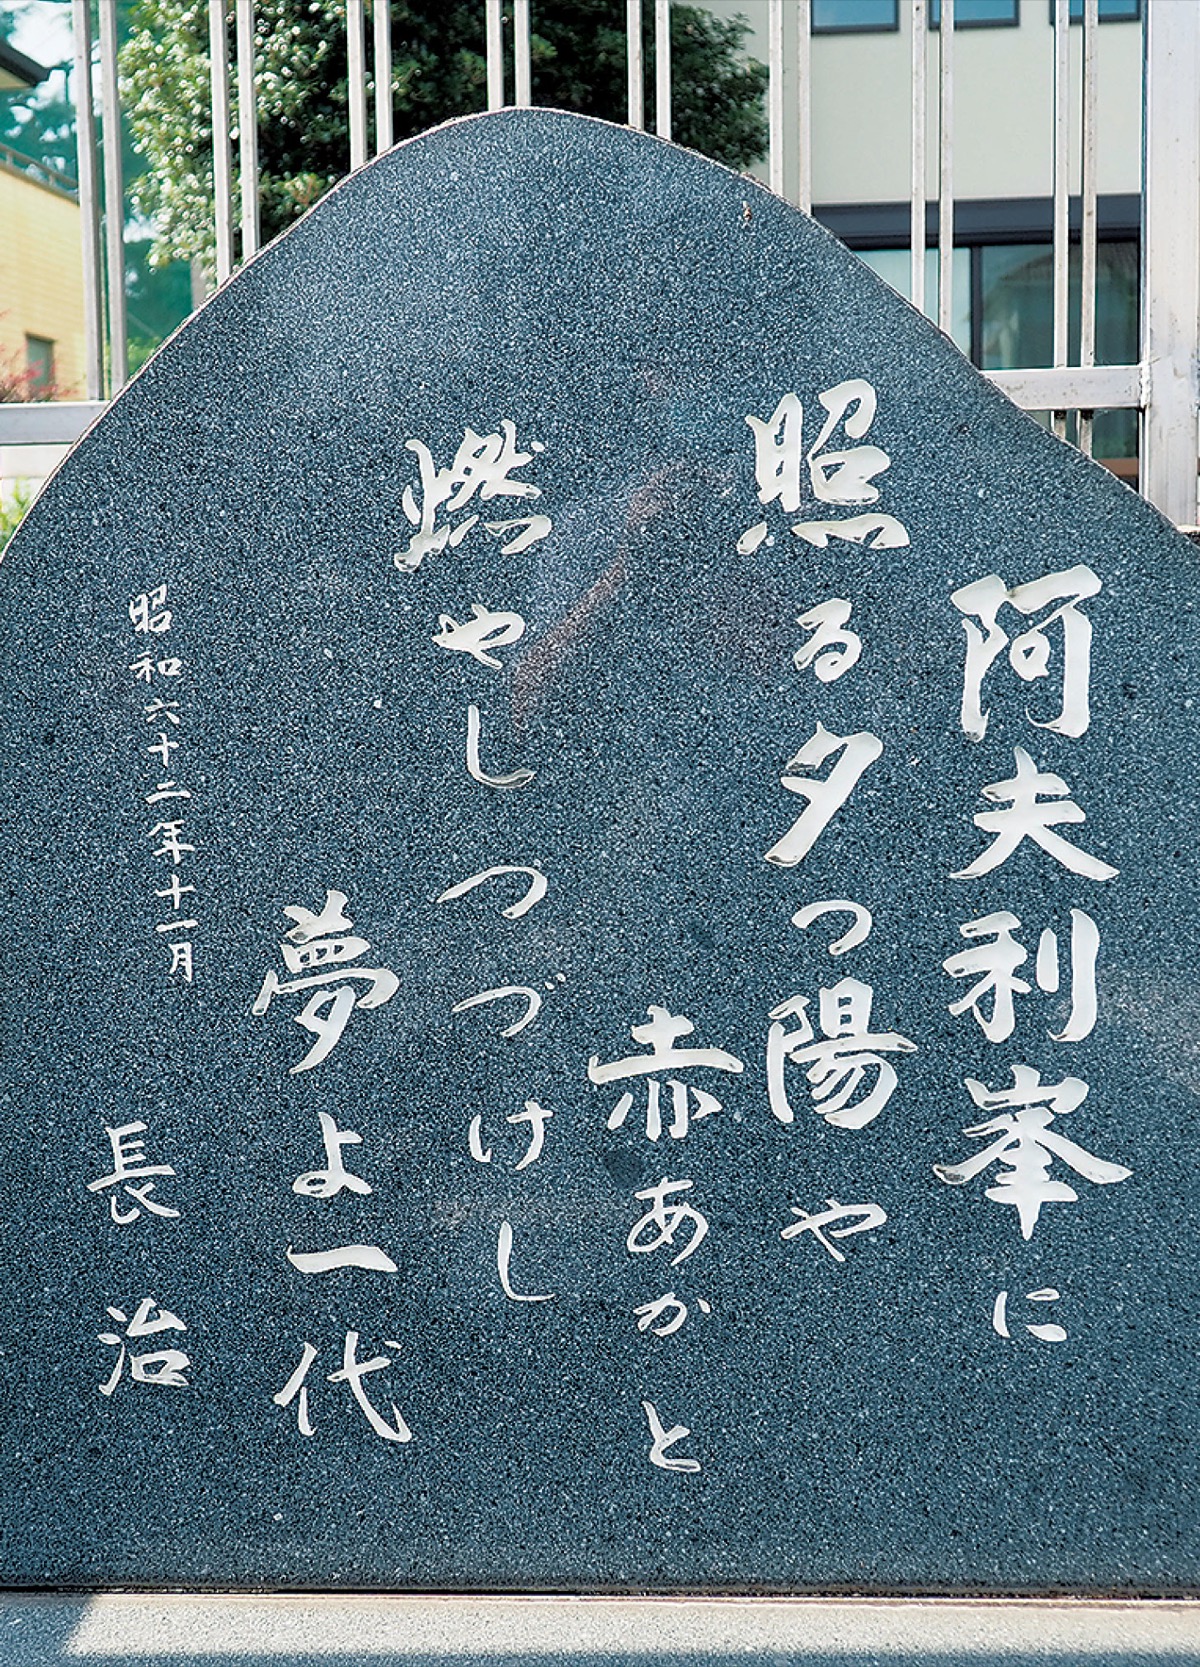 阿夫利峯に
照る夕つ陽や
赤あかと
燃やしつづけし
夢よ一代
昭和六十二年十一月
長治